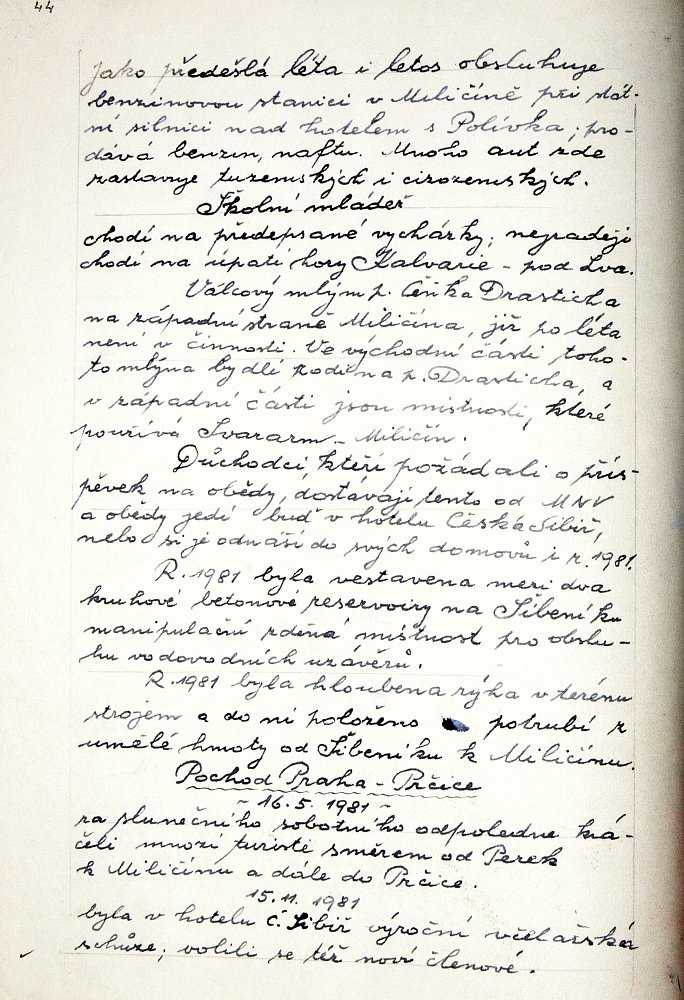 44
jako předešlá léta i letos obsluhuje
benzinovou stanici v Miličíně při stát-
ní silnici nad hotelem s Polívka; pro-
dává benzin, naftu. Mnoho aut zde
zastavuje tuzemských i cizozemských.
Školní mládež
chodí na předepsané vycházky; nejraději
chodí na úpatí hory Kalvarie - pod Lva.
Válcový mlýn p. Čeňka Drasticha
na západní straně Miličína, již po léta
není v činnosti. Ve východní části toho-
to mlýna bydlí rodina p. Drasticha, a
v západní části jsou místnosti, které
používá Svazarm - Miličín.
Důchodci, kteří požádali o přís-
pěvek na obědy, dostávají tento od MNV
a obědy jedí buď v hotelu Česká Sibiř,
nebo si je odnáší do svých domovů i r. 1981.
R. 1981 byla vestavena mezi dva
kruhové betonové reservoiry na Šibeníku
manipulační zděná místnost pro obslu-
hu vodovodních uzávěrů.
R. 1981 byla hloubena rýha v terénu
strojem a do ní položeno potrubí z
umělé hmoty od Šibeníku k Miličínu.
Pochod Praha - Prčice
- 16. 5. 1981 -
za slunečního sobotního odpoledne krá-
čeli mnozí turisté směrem od Perek
k Miličínu a dále do Prčice.
15. 11. 1981
byla v hotelu Č. Sibiř výroční včelařská
schůze; volili se též noví členové.